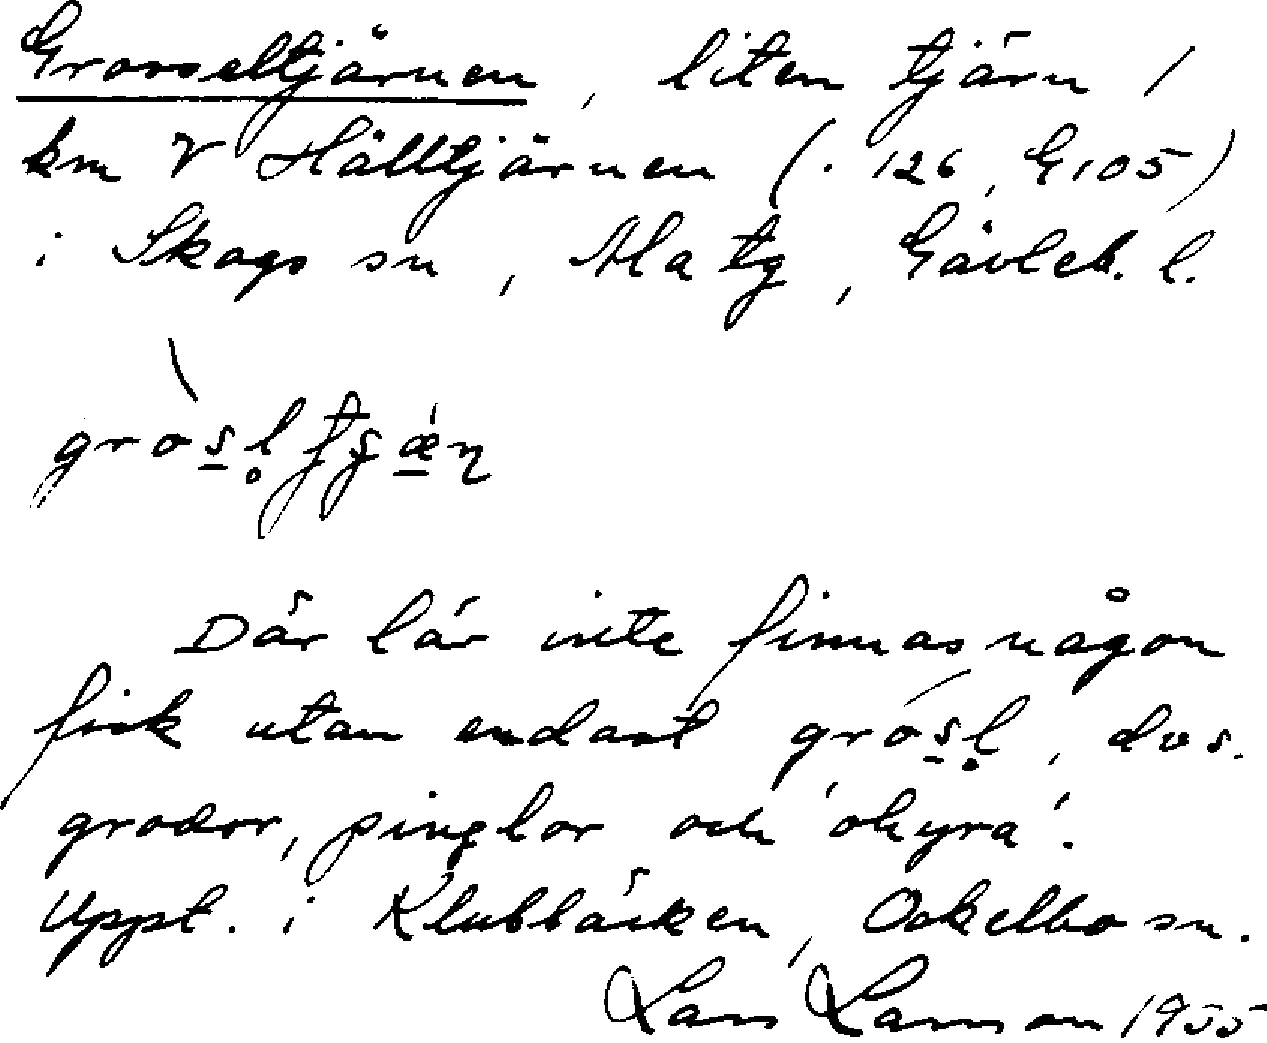 Grovseltjärnen, liten tjärn 1
km V Hälltjärnen (. 126, G105)
i Skogs sn, Ala tg, Gävleb. l.
gròsl̥tjǽn
Där lär inte finnas någon
fisk utan endast grósl̥, dvs.
grodor, pinglor och 'ohyra'.
Uppt. i Klubbäcken, Ockelbo sn.
Lars Larsson 1955